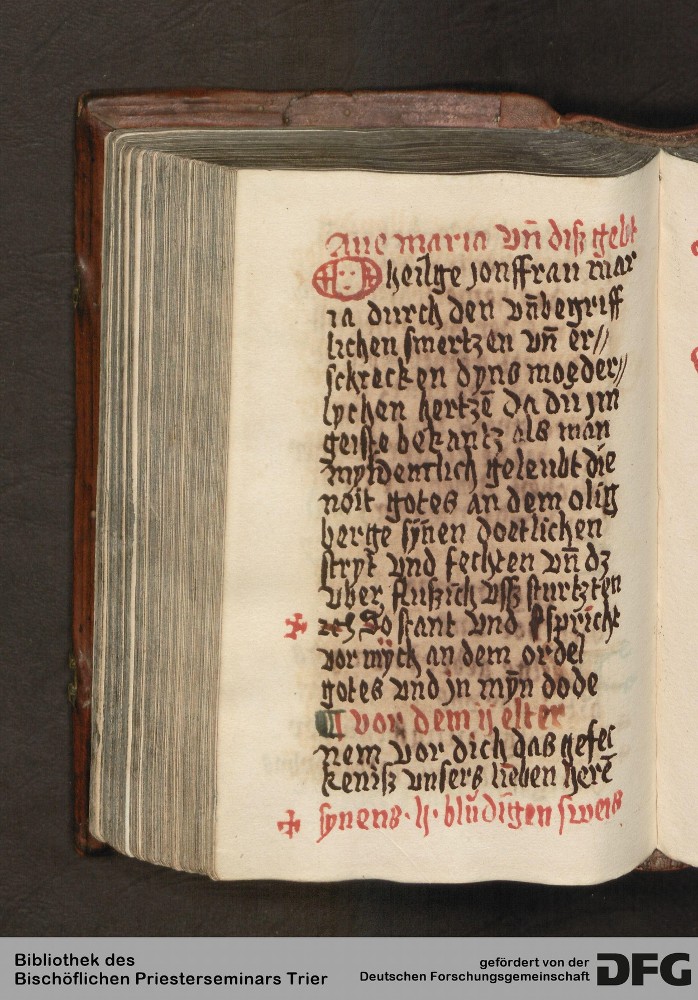 Aue maria vn̄ diß gebt
O heilge jonffrau mar
ia durch den vn̄begriff
lichen smertzen vn̄ er//
schrecken dyns moeder//
lychen hertzē da du jm
geiste bekantz als man
mytdentlich geleubt die
noit gotes an dem olig
berge sȳnen doetlichen
stryt vnd fechten vn̄ dz
vber flußich vsß sturtzten
So stant vnd spricht
vor mych an dem ordel
gotes vnd jn mȳn dode
vor dem ij elter
nem vor dich das gefec
keniß vnsers lieben herē
synens · h · bludigen sweis
Bibliothek des
Bischöflichen Priesterseminars Trier
gefördert von der
Deutschen Forschungsgemeinschaft
DFG